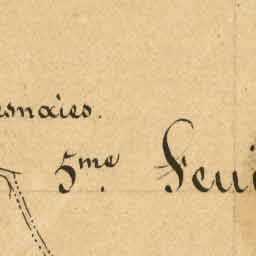 esnaies.
5me. Feui